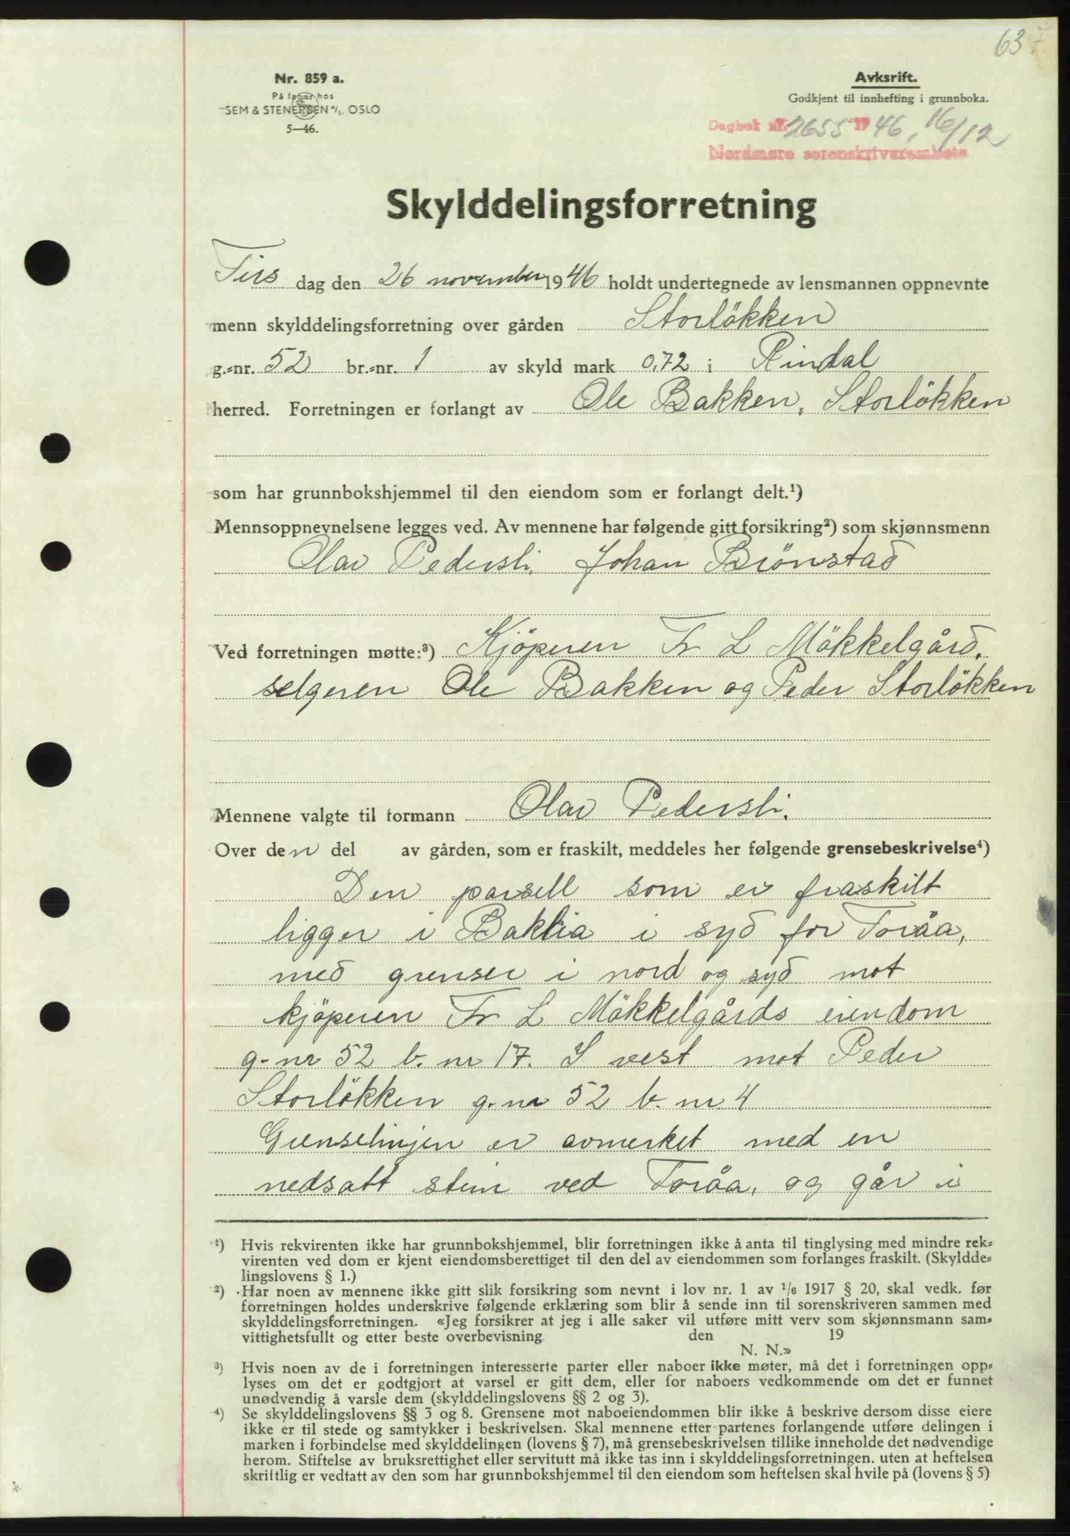 63
Nr. 859 a.
På lager hos
SEM & STENERSEN A/S, OSLO
5—46.
Avkskrift.
Godkjent til innhefting i grunnboka.
Dagbok nr. 2655 1946, 16/12
Nordmøre sorenskriverembete
Skylddelingsforretning
Tirs dag den 26 november 1946 holdt undertegnede av lensmannen oppnevnte
menn skylddelingsforretning over gården Storløkken
g.-nr. 52 br.-nr. 1 av skyld mark 0,72 i Rindal
herred. Forretningen er forlangt av Ole Bakken, Storlökken
som har grunnbokshjemmel til den eiendom som er forlangt delt.¹)
Mennsoppnevnelsene legges ved. Av mennene har følgende gitt forsikring²) som skjønnsmenn
Olav Pedersli. Johan Brönstad
Ved forretningen møtte:³) Kjöperen Fr L Mökkelgård,
selgeren Ole Bakken og Peder Storlökken
Mennene valgte til formann Olav Pedersli.
Over den del av gården, som er fraskilt, meddeles her følgende grensebeskrivelse⁴)
Den parsell som er fraskilt
ligger i Baklia i syd for Toråa,
med grenser i nord og syd mot
kjöperen Fr L Mökkelgårds eiendom
g.nr 52 b. nr 17. I vest mot Peder
Storlökken g.nr 52 b. nr 4
Grenselinjen er avmerket med en
nedsatt stein ved Toråa, og går i
¹) Hvis rekvirenten ikke har grunnbokshjemmel, blir forretningen ikke å anta til tinglysing med mindre rek-
virenten ved dom er kjent eiendomsberettiget til den del av eiendommen som forlanges fraskilt. (Skyldde-
lingslovens § 1.)
²) Har noen av mennene ikke gitt slik forsikring som nevnt i lov nr. 1 av 1/6 1917 § 20, skal vedk. før
forretningen holdes underskrive følgende erklæring som blir å sende inn til sorenskriveren sammen med
skylddelingsforretningen. «Jeg forsikrer at jeg i alle saker vil utføre mitt verv som skjønnsmann sam-
vittighetsfullt og etter beste overbevisning den 19
N. N.»
³) Hvis noen av de i forretningen interesserte parter eller naboer ikke møter, må det i forretningen opp-
lyses om det er godtgjort at varsel er gitt dem, eller for naboers vedkommende om det er funnet
unødvendig å varsle dem (skylddelingslovens §§ 2 og 3).
⁴) Se skylddelingslovens §§ 3 og 8. Grensene mot naboeiendommen blir ikke å beskrive dersom disse eiere
ikke er til stede og samtykker i beskrivelsen. Skal mennene etter partenes forlangende utføre delingen i
marken i forbindelse med skylddelingen (lovens § 7), må grensebeskrivelsen tillike inneholde det nødvendige
herom. Stiftelse av bruksrettighet eller servitutt må ikke tas inn i skylddelingsforretningen. uten at heftelsen
skriftlig er vedtatt av den som har grunnbokshjemmel til den eiendom som heftelsen skal hvile på (lovens § 5)